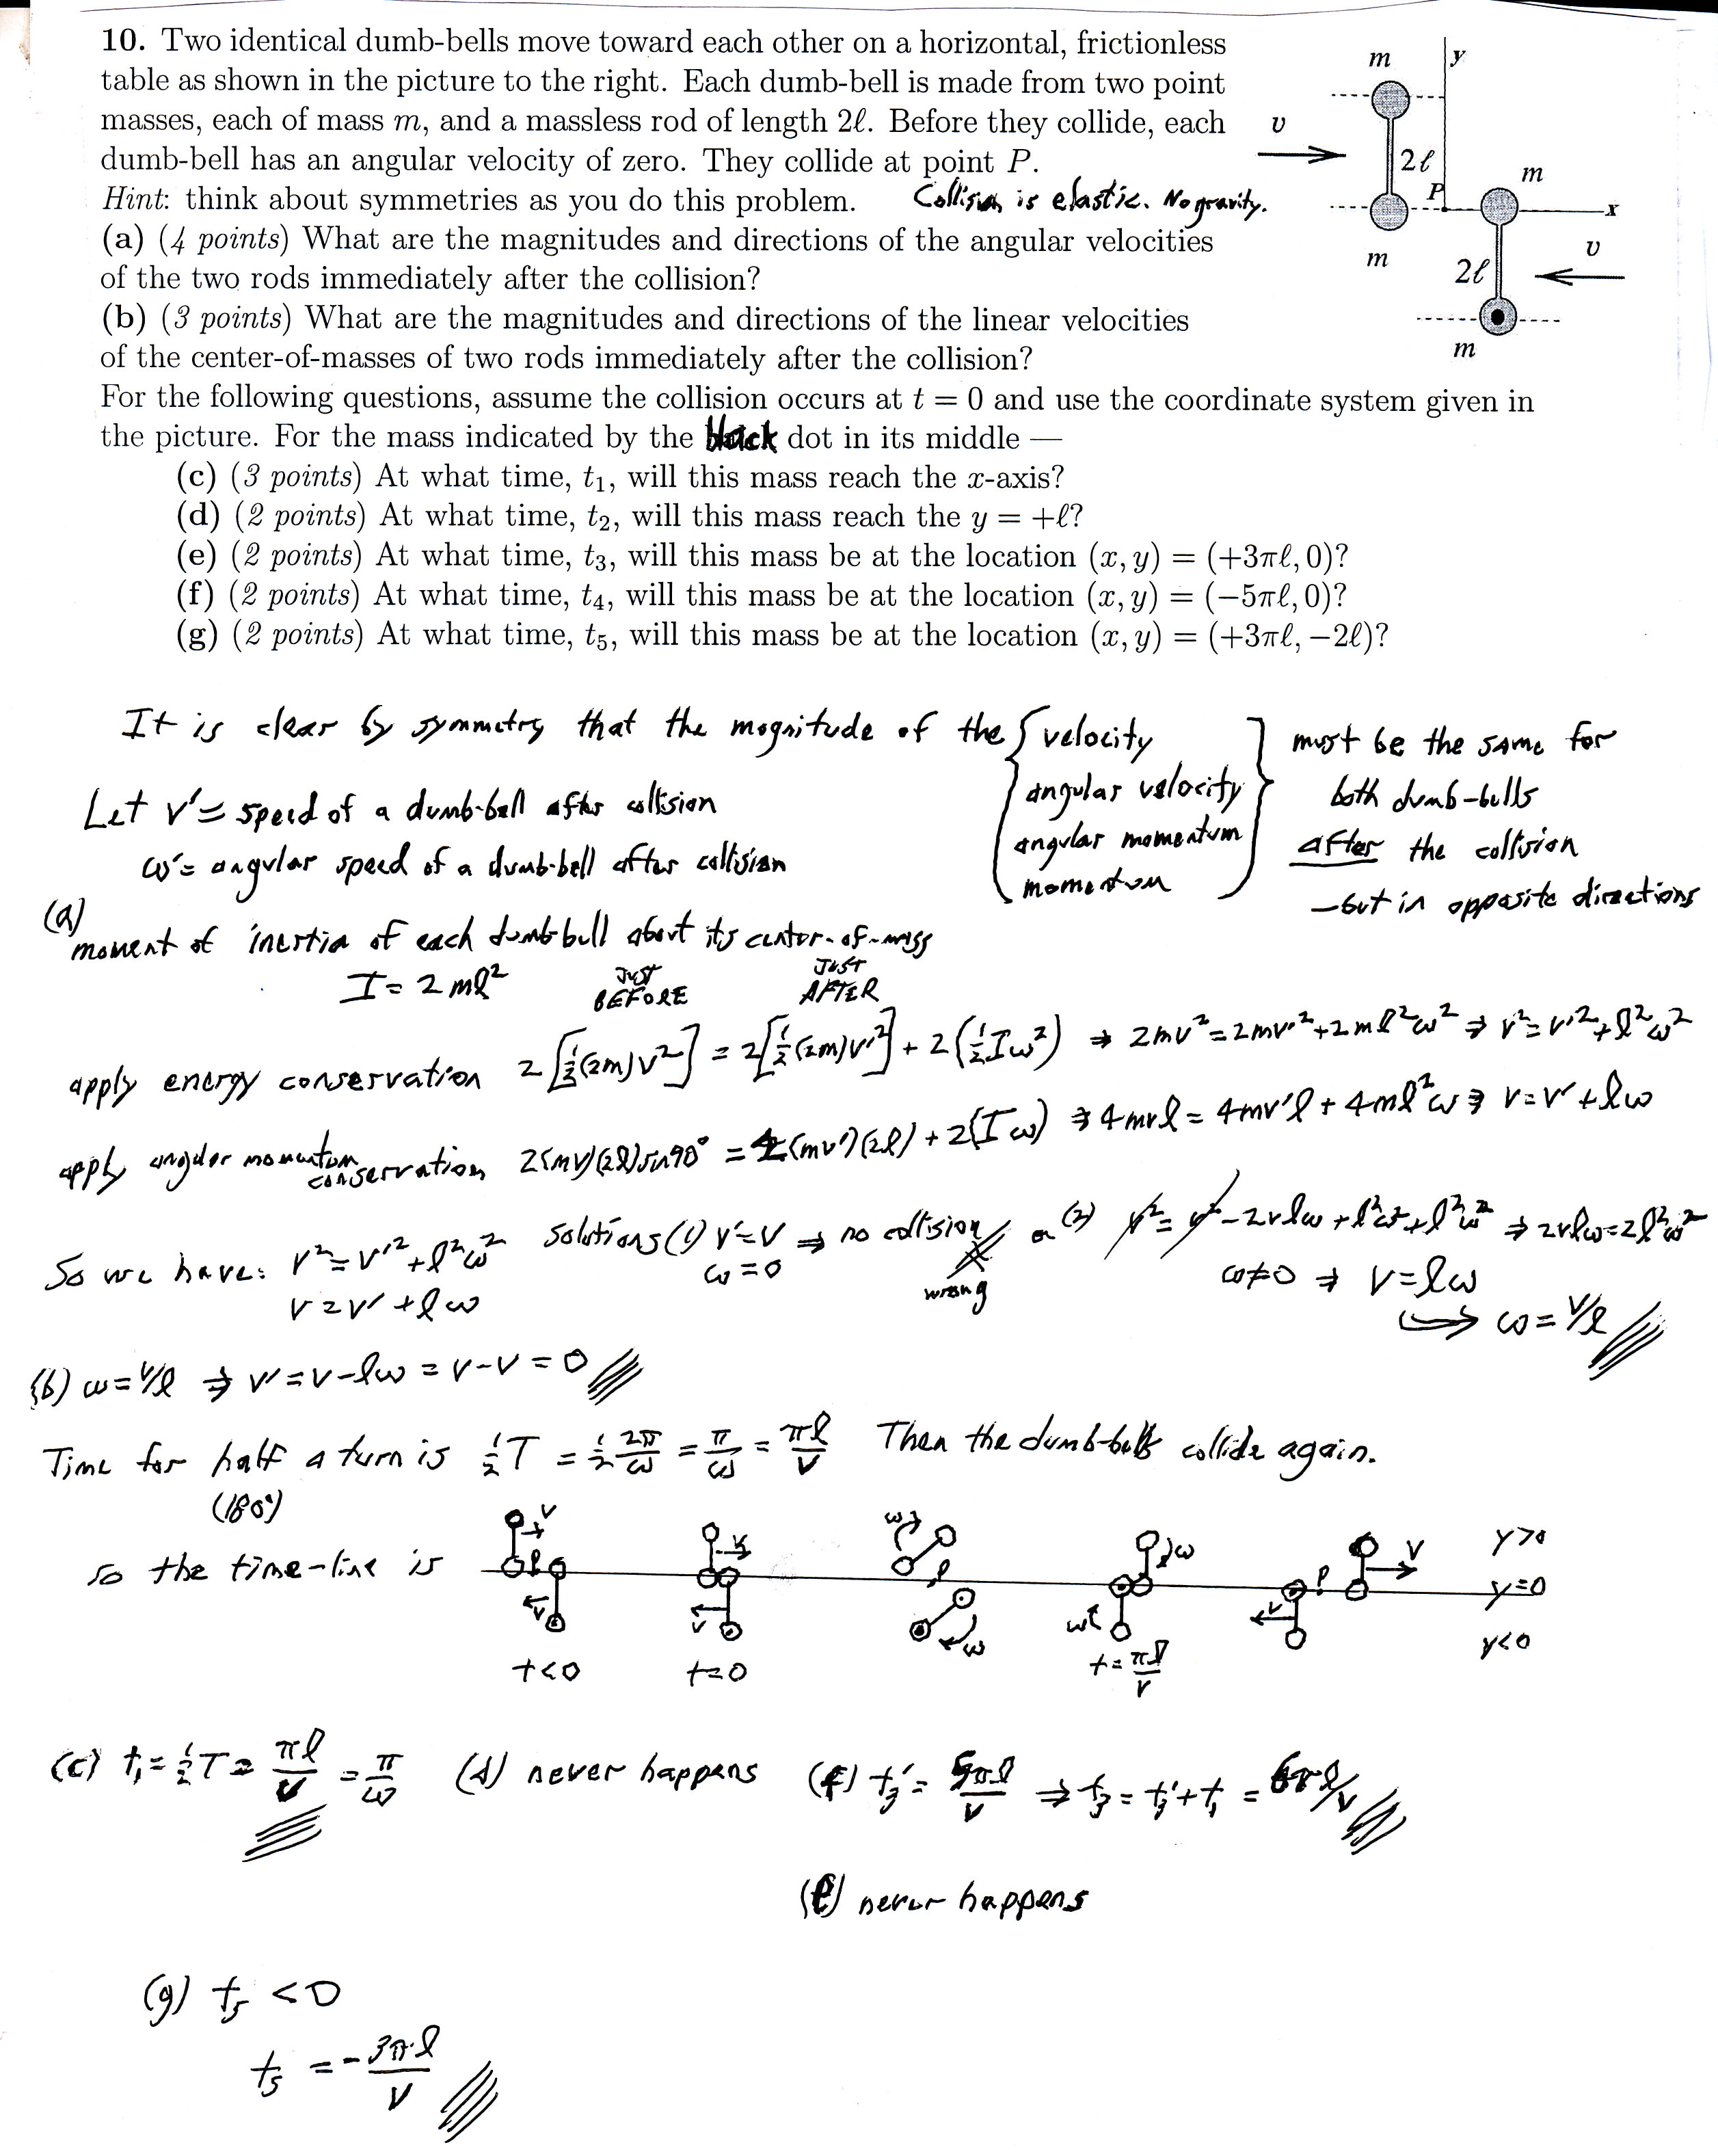 10. Two identical dumb-bells move toward each other on a horizontal, frictionless
table as shown in the picture to the right. Each dumb-bell is made from two point
masses, each of mass m, and a massless rod of length 2ℓ. Before they collide, each
dumb-bell has an angular velocity of zero. They collide at point P.
Hint: think about symmetries as you do this problem. Collision is elastic. No gravity.
(a) (4 points) What are the magnitudes and directions of the angular velocities
of the two rods immediately after the collision?
(b) (3 points) What are the magnitudes and directions of the linear velocities
of the center-of-masses of two rods immediately after the collision?
m
y
v
2ℓ
P
m
m
x
v
2ℓ
m
For the following questions, assume the collision occurs at t = 0 and use the coordinate system given in
the picture. For the mass indicated by the black dot in its middle —
(c) (3 points) At what time, t₁, will this mass reach the x-axis?
(d) (2 points) At what time, t₂, will this mass reach the y = +ℓ?
(e) (2 points) At what time, t₃, will this mass be at the location (x, y) = (+3πℓ, 0)?
(f) (2 points) At what time, t₄, will this mass be at the location (x, y) = (−5πℓ, 0)?
(g) (2 points) At what time, t₅, will this mass be at the location (x, y) = (+3πℓ, −2ℓ)?
It is clear by symmetry that the magnitude of the { velocity
angular velocity
angular momentum
momentum }
must be the same for
both dumb-bells
after the collision
- but in opposite directions
Let v' = speed of a dumb-bell after collision
ω' = angular speed of a dumb-bell after collision
(a)
moment of inertia of each dumb-bell about its center-of-mass
I = 2mℓ²
JUST BEFORE
JUST AFTER
apply energy conservation 2[½(2m)v²] = 2[½(2m)v'²] + 2(½Iω²) ⇒ 2mv² = 2mv'² + 2mℓ²ω² ⇒ v² = v'² + ℓ²ω²
apply angular momentum conservation 2(mv)(2ℓ)sin90° = 2(mv')(2ℓ) + 2(Iω) ⇒ 4mvℓ = 4mv'ℓ + 4mℓ²ω ⇒ v = v' + ℓω
So we have: v² = v'² + ℓ²ω² solutions (1) v' = v ⇒ no collision or (2) v² = v² - 2vℓω + ℓ²ω² + ℓ²ω² ⇒ 2vℓω = 2ℓ²ω²
v = v' + ℓω ω = 0 wrong ω ≠ 0 ⇒ v = ℓω
ω = v/ℓ
(b) ω = v/ℓ ⇒ v' = v - ℓω = v - v = 0
Time for half a turn is ½T = ½ 2π/ω = π/ω = πℓ/v Then the dumb-bells collide again.
(180°)
so the time-line is
v
P
v
v
v
ω
P
ω
ω
ω
P
v
v
y>0
y=0
y<0
t<0
t=0
t = πℓ/v
(c) t₁ = ½T = πℓ/v = π/ω (d) never happens (f) t₃' = 5πℓ/v ⇒ t₃ = t₃' + t₁ = 6πℓ/v
(e) never happens
(g) t₅ < 0
t₅ = - 3πℓ/v